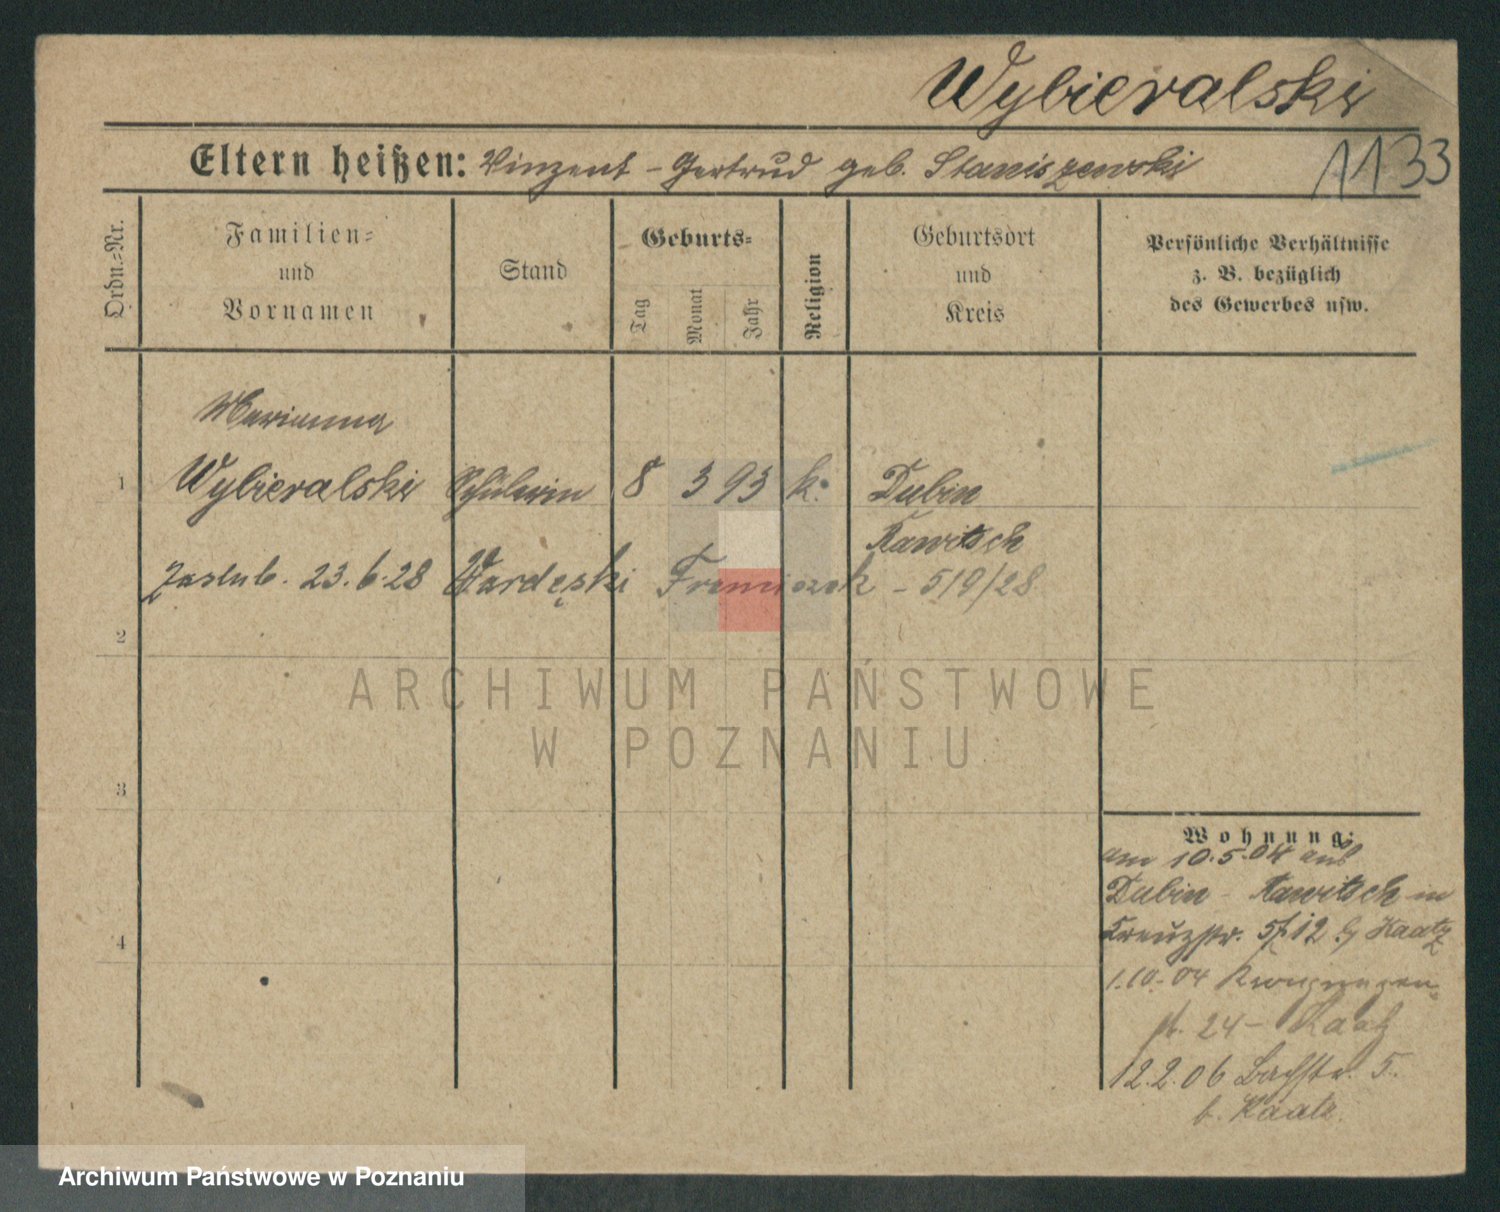 Wybieralski
Eltern heißen: Vinzent - Gertrud geb. Staniszewski
1133
Ordn.=Nr.
Familien=
und
Vornamen
Stand
Geburts=
Tag
Monat
Jahr
Religion
Geburtsort
und
Kreis
Persönliche Verhältnisse
z. B. bezüglich
des Gewerbes usw.
Marianna
1 Wybieralski Schülerin 8 3 93 k. Dubin
Rawitsch
zaslub. 23.6.28 Wardęski Franciszek - 519/28
2
ARCHIWUM PAŃSTWOWE
W POZNANIU
3
4
Wohnung:
am 10.5.04 aus
Dubin - Rawitsch in
Kreuzstr. 5/12 Kaatz
1.10.04
24 - Kaatz
12.2.06 Bachstr. 5.
b. Kaatz.
Archiwum Państwowe w Poznaniu